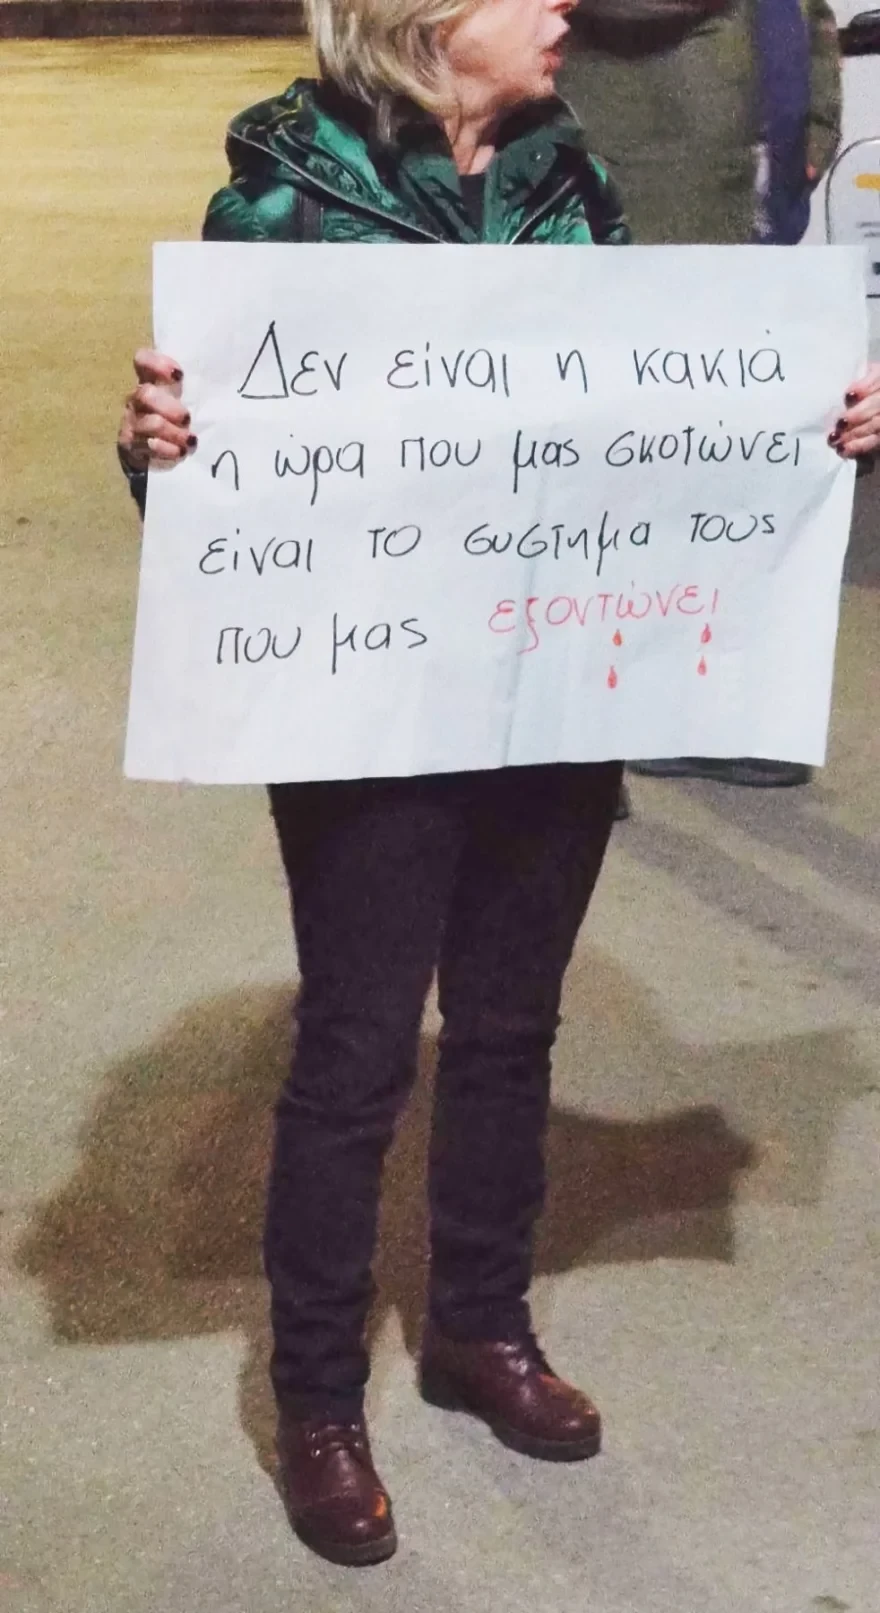 Δεν είναι η κακιά
η ώρα που μας σκοτώνει
είναι το συστημα τους
που μας εξοντώνει